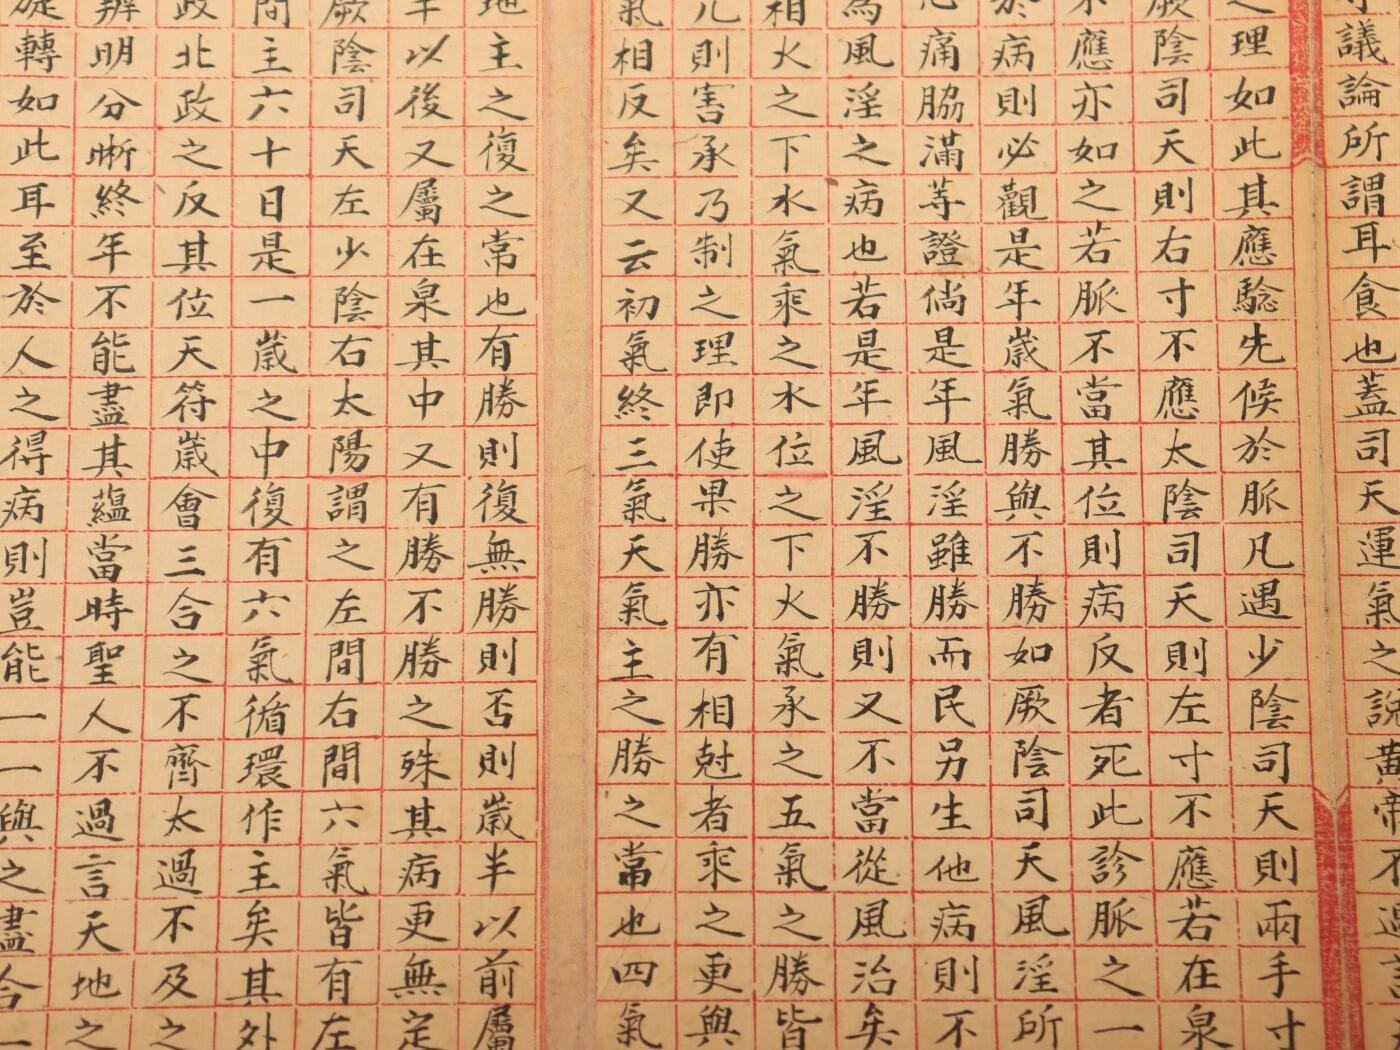 議論所謂耳食也蓋司天運氣之說黃帝不過言
之理如此其應騐先候於脈凡遇少陰司天則兩手寸
厥陰司天則右寸不應太陰司天則左寸不應若在泉
不應亦如之若脈不當其位則病反者死此診脈之一
於病則必觀是年歲氣勝與不勝如厥陰司天風淫所
心痛脇滿等證倘是年風淫雖勝而民另生他病則不
為風淫之病也若是年風淫不勝則又不當從風治矣
相火之下水氣乘之水位之下火氣承之五氣之勝皆
亢則害承乃制之理即使果勝亦有相尅者乘之更與
氣相反矣又云初氣終三氣天氣主之勝之當也四氣
地主之復之常也有勝則復無勝則否則歲半以前屬
半以後又屬在泉其中又有勝不勝之殊其病更無定
厥陰司天左少陰右太陽謂之左間右間六氣皆有左
間主六十日是一歲之中復有六氣循環作主矣其外
政北政之反其位天符歲會三合之不齊太過不及之
辨明分晰終年不能盡其蘊當時聖人不過言天地之
旋轉如此耳至於人之得病則豈能一一與之盡合一